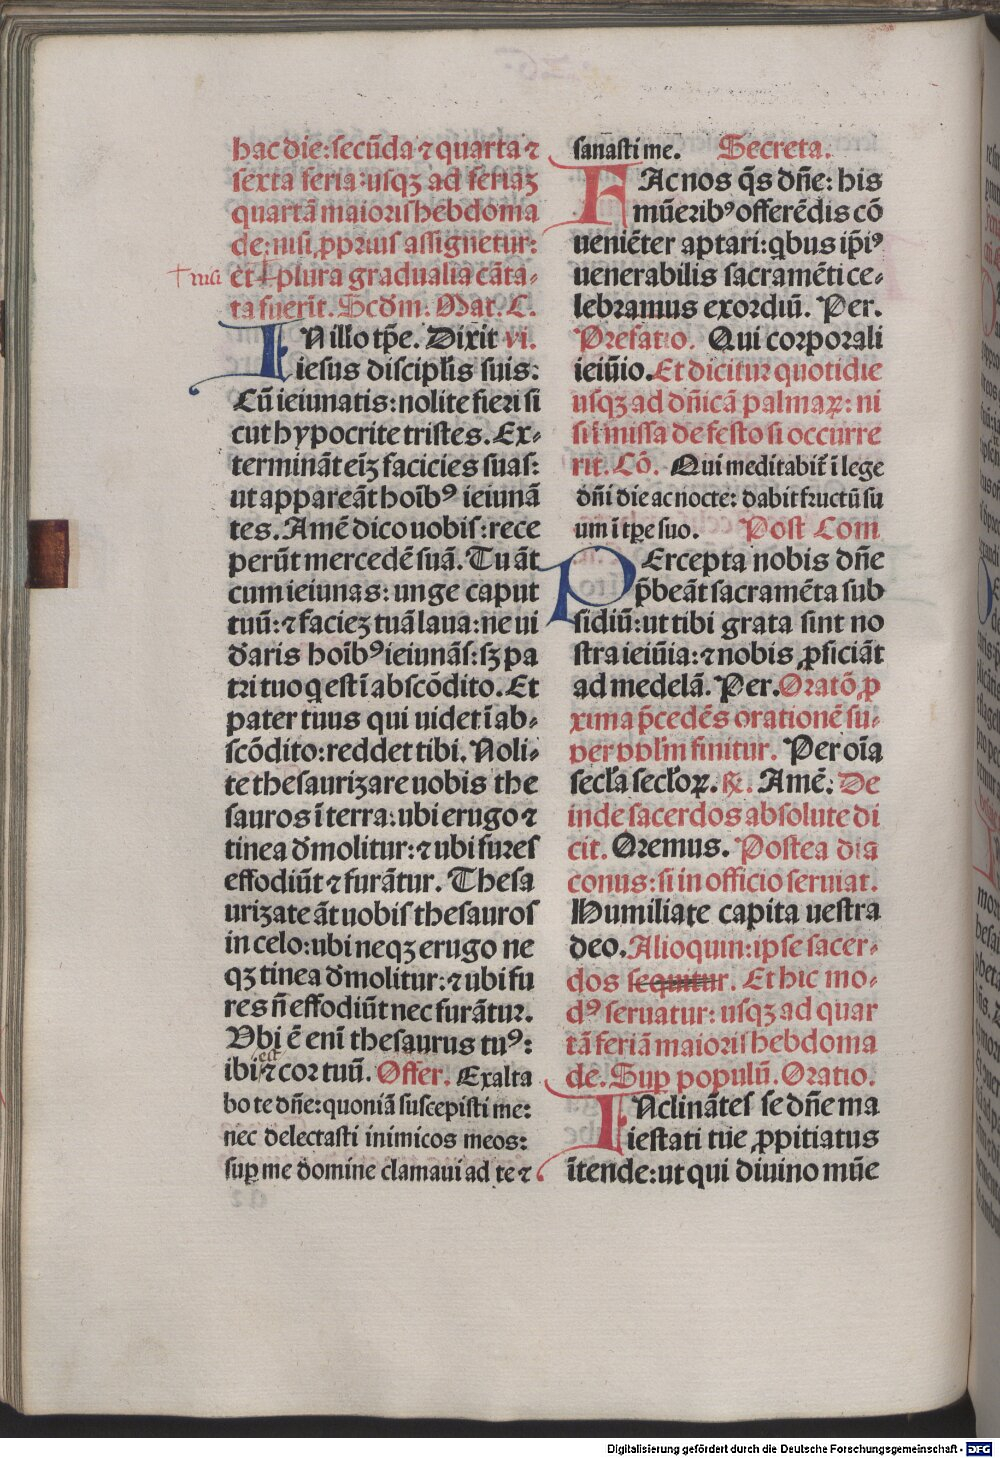 hac die: secūda ⁊ quarta ⁊
sexta feria: usqꝫ ad feriaꝫ
quartā maioris hebdoma
de: nisi ꝓprius assignetur:
et plura gradualia cāta-
ta fuerīt. Scđm. Mat. C.
IN illo tꝑe. Dixit vi.
iesus discipľis suis:
Cū ieiunatis: nolite fieri si
cut hypocrite tristes. Ex-
termināt eiꝫ facicies suas:
ut appareāt hoībꝰ ieiunā
tes. Amē dico uobis: rece
perūt mercedē suā. Tu āt
cum ieiunas: unge caput
tuū: ⁊ faciez tuā laua: ne ui
đaris hoībꝰ ieiunās: sꝫ pa
tri tuo q est ī abscōdito. Et
pater tuus qui uidet ī ab-
scōdito: reddet tibi. Noli-
te thesaurizare uobis the
sauros ī terra: ubi erugo ⁊
tinea đmolitur: ⁊ ubi fures
effodiūt ⁊ furātur. Thesa
urizate āt uobis thesauros
in celo: ubi neqꝫ erugo ne
qꝫ tinea đmolitur: ⁊ ubi fu
res n̄ effodiūt nec furātur.
Ubi ē enī thesaurus tuꝰ:
est
ibi ⁊ cor tuū. Offer. Exalta
bo te dn̄e: quoniā suscepisti me:
nec delectasti inimicos meos:
suꝑ me domine clamaui ad te ⁊
sanasti me. Secreta.
FAc nos q̄s dn̄e: his
mūeribꝰ offerēdis cō
ueniēter aptari: qbus ip̄iꝰ
uenerabilis sacramēti ce-
lebramus exordiū. Per.
Prefatio. Qui corporali
ieiūio. Et dicitur quotidie
usqꝫ ad dn̄icā palmaꝝ: ni
si ī missa de festo si occurre
rit. Cō. Qui meditabit̄ ī lege
dn̄i die ac nocte: dabit fructū su
um ī tꝑe suo. Post Com
PErcepta nobis dn̄e
p̄beāt sacramēta sub
sidiū: ut tibi grata sint no
stra ieiūia: ⁊ nobis ꝓficiāt
ad medelā. Per. Oratō ꝓ
xima p̄cedēs orationē su-
per ppľm finitur. Per oīa
secľa secľoꝝ. ℟. Amē. De
inde sacerdos absolute di
cit. Oremus. Postea dia
conus: si in officio seruiat.
Humiliate capita uestra
deo. Alioquin: ipse sacer-
dos sequitur. Et hic mo-
dꝰ seruatur: usqꝫ ad quar
tā feriā maioris hebdoma
de. Suꝑ populū. Oratio.
INclinātes se dn̄e ma
iestati tue ꝓpitiatus
ītende: ut qui diuino mūe
Digitalisierung gefördert durch die Deutsche Forschungsgemeinschaft - DFG